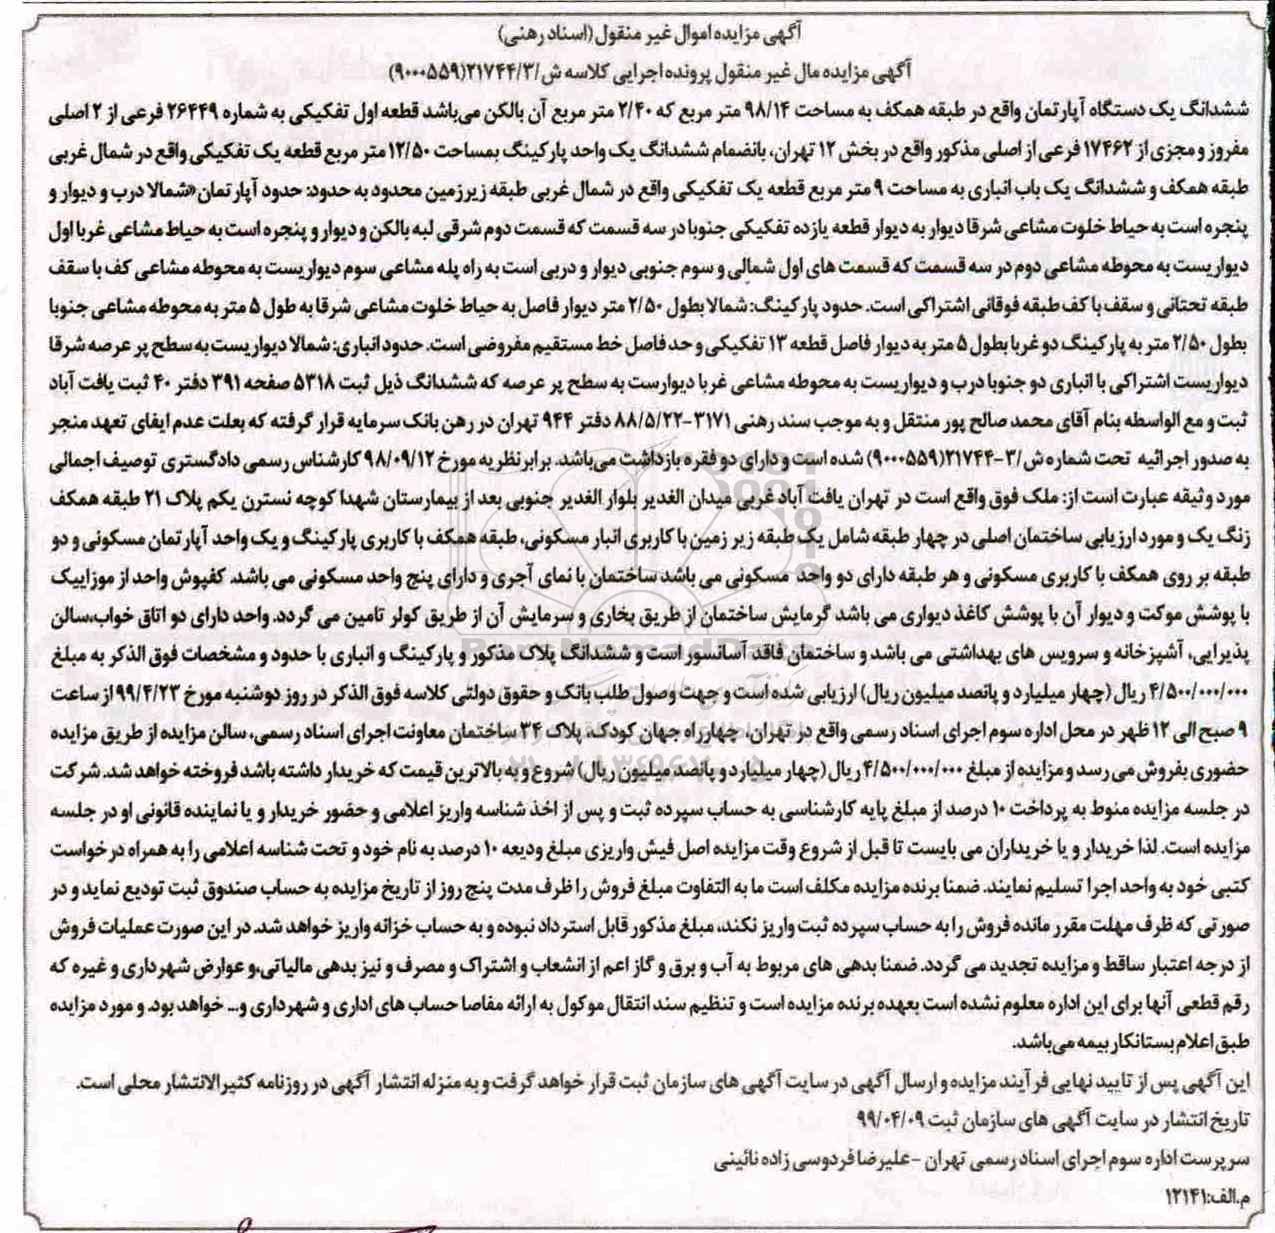 آگهی مزایده اموال غیر منقول (اسناد رهنی)
آگهی مزایده مال غیر منقول پرونده اجرایی کلاسه ش/۲۱۷۴۴/۳(۹۰۰۰۵۵۹)
ششدانگ یک دستگاه آپارتمان واقع در طبقه همکف به مساحت ۹۸/۱۴ متر مربع که ۲/۴۰ متر مربع آن بالکن می‌باشد قطعه اول تفکیکی به شماره ۲۶۴۴۹ فرعی از ۲ اصلی
مفروز و مجزی از ۱۷۴۶۲ فرعی از اصلی مذکور واقع در بخش ۱۲ تهران، بانضمام ششدانگ یک واحد پارکینگ بمساحت ۱۲/۵۰ متر مربع قطعه یک تفکیکی واقع در شمال غربی
طبقه همکف و ششدانگ یک باب انباری به مساحت ۹ متر مربع قطعه یک تفکیکی واقع در شمال غربی طبقه زیرزمین محدود به حدود: حدود آپارتمان«شمالا درب و دیوار و
پنجره است به حیاط خلوت مشاعی شرقا دیوار به دیوار قطعه یازده تفکیکی جنوبا در سه قسمت که قسمت دوم شرقی لبه بالکن و دیوار و پنجره است به حیاط مشاعی غربا اول
دیواریست به محوطه مشاعی دوم در سه قسمت که قسمت های اول شمالی و سوم جنوبی دیوار و دربی است به راه پله مشاعی سوم دیواریست به محوطه مشاعی کف با سقف
طبقه تحتانی و سقف با کف طبقه فوقانی اشتراکی است. حدود پارکینگ: شمالا بطول ۲/۵۰ متر دیوار فاصل به حیاط خلوت مشاعی شرقا به طول ۵ متر به محوطه مشاعی جنوبا
بطول ۲/۵۰ متر به پارکینگ دو غربا بطول ۵ متر به دیوار فاصل قطعه ۱۳ تفکیکی و حد فاصل خط مستقیم مفروضی است. حدود انباری: شمالا دیواریست به سطح پر عرصه شرقا
دیواریست اشتراکی با انباری دو جنوبا درب و دیواریست به محوطه مشاعی غربا دیوارست به سطح پر عرصه که ششدانگ ذیل ثبت ۵۳۱۸ صفحه ۳۹۱ دفتر ۴۰ ثبت یافت آباد
ثبت و مع الواسطه بنام آقای محمد صالح پور منتقل و به موجب سند رهنی ۳۱۷۱-۸۸/۵/۲۲ دفتر ۹۴۴ تهران در رهن بانک سرمایه قرار گرفته که بعلت عدم ایفای تعهد منجر
به صدور اجرائیه تحت شماره ش/۳-۲۱۷۴۴(۹۰۰۰۵۵۹) شده است و دارای دو فقره بازداشت می‌باشد. برابر نظریه مورخ ۹۸/۰۹/۱۲ کارشناس رسمی دادگستری توصیف اجمالی
مورد وثیقه عبارت است از: ملک فوق واقع است در تهران یافت آباد غربی میدان الغدیر بلوار الغدیر جنوبی بعد از بیمارستان شهدا کوچه نسترن یکم پلاک ۲۱ طبقه همکف
زنگ یک و مورد ارزیابی ساختمان اصلی در چهار طبقه شامل یک طبقه زیر زمین با کاربری انبار مسکونی، طبقه همکف با کاربری پارکینگ و یک واحد آپارتمان مسکونی و دو
طبقه بر روی همکف با کاربری مسکونی و هر طبقه دارای دو واحد مسکونی می باشد ساختمان با نمای آجری و دارای پنج واحد مسکونی می باشد. کفپوش واحد از موزاییک
با پوشش موکت و دیوار آن با پوشش کاغذ دیواری می باشد گرمایش ساختمان از طریق بخاری و سرمایش آن از طریق کولر تامین می گردد. واحد دارای دو اتاق خواب،سالن
پذیرایی، آشپزخانه و سرویس های بهداشتی می باشد و ساختمان فاقد آسانسور است و ششدانگ پلاک مذکور و پارکینگ و انباری با حدود و مشخصات فوق الذکر به مبلغ
۴/۵۰۰/۰۰۰/۰۰۰ ریال (چهار میلیارد و پانصد میلیون ریال) ارزیابی شده است و جهت وصول طلب بانک و حقوق دولتی کلاسه فوق الذکر در روز دوشنبه مورخ ۹۹/۴/۲۳ از ساعت
۹ صبح الی ۱۲ ظهر در محل اداره سوم اجرای اسناد رسمی واقع در تهران، چهارراه جهان کودک، پلاک ۳۴ ساختمان معاونت اجرای اسناد رسمی، سالن مزایده از طریق مزایده
حضوری بفروش می رسد و مزایده از مبلغ ۴/۵۰۰/۰۰۰/۰۰۰ ریال (چهار میلیارد و پانصد میلیون ریال) شروع و به بالاترین قیمت که خریدار داشته باشد فروخته خواهد شد. شرکت
در جلسه مزایده منوط به پرداخت ۱۰ درصد از مبلغ پایه کارشناسی به حساب سپرده ثبت و پس از اخذ شناسه واریز اعلامی و حضور خریدار و یا نماینده قانونی او در جلسه
مزایده است. لذا خریدار و یا خریداران می بایست تا قبل از شروع وقت مزایده اصل فیش واریزی مبلغ ودیعه ۱۰ درصد به نام خود و تحت شناسه اعلامی را به همراه درخواست
کتبی خود به واحد اجرا تسلیم نمایند. ضمنا برنده مزایده مکلف است ما به التفاوت مبلغ فروش را ظرف مدت پنج روز از تاریخ مزایده به حساب صندوق ثبت تودیع نماید و در
صورتی که ظرف مهلت مقرر مانده فروش را به حساب سپرده ثبت واریز نکند، مبلغ مذکور قابل استرداد نبوده و به حساب خزانه واریز خواهد شد. در این صورت عملیات فروش
از درجه اعتبار ساقط و مزایده تجدید می گردد. ضمنا بدهی های مربوط به آب و برق و گاز اعم از انشعاب و اشتراک و مصرف و نیز بدهی مالیاتی،و عوارض شهرداری و غیره که
رقم قطعی آنها برای این اداره معلوم نشده است بعهده برنده مزایده است و تنظیم سند انتقال موکول به ارائه مفاصا حساب های اداری و شهرداری و... خواهد بود. و مورد مزایده
طبق اعلام بستانکار بیمه می‌باشد.
این آگهی پس از تایید نهایی فرآیند مزایده و ارسال آگهی در سایت آگهی های سازمان ثبت قرار خواهد گرفت و به منزله انتشار آگهی در روزنامه کثیرالانتشار محلی است.
تاریخ انتشار در سایت آگهی های سازمان ثبت ۹۹/۰۴/۰۹
سرپرست اداره سوم اجرای اسناد رسمی تهران -علیرضا فردوسی زاده نائینی
م.الف:۱۲۱۴۱